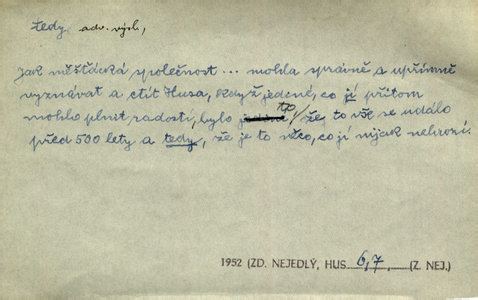 tedy adv. výsl.,
Jak měšťácká společnost ... mohla správně a upřímně
vyznávat a ctít Husa, když jediné, co jí přitom
mohlo plnit radostí, bylo to, že to vše se událo
před 500 lety a tedy, že je to něco, co jí nijak nehrozí.
1952 (ZD. NEJEDLÝ, HUS 6,7, (Z. NEJ.)